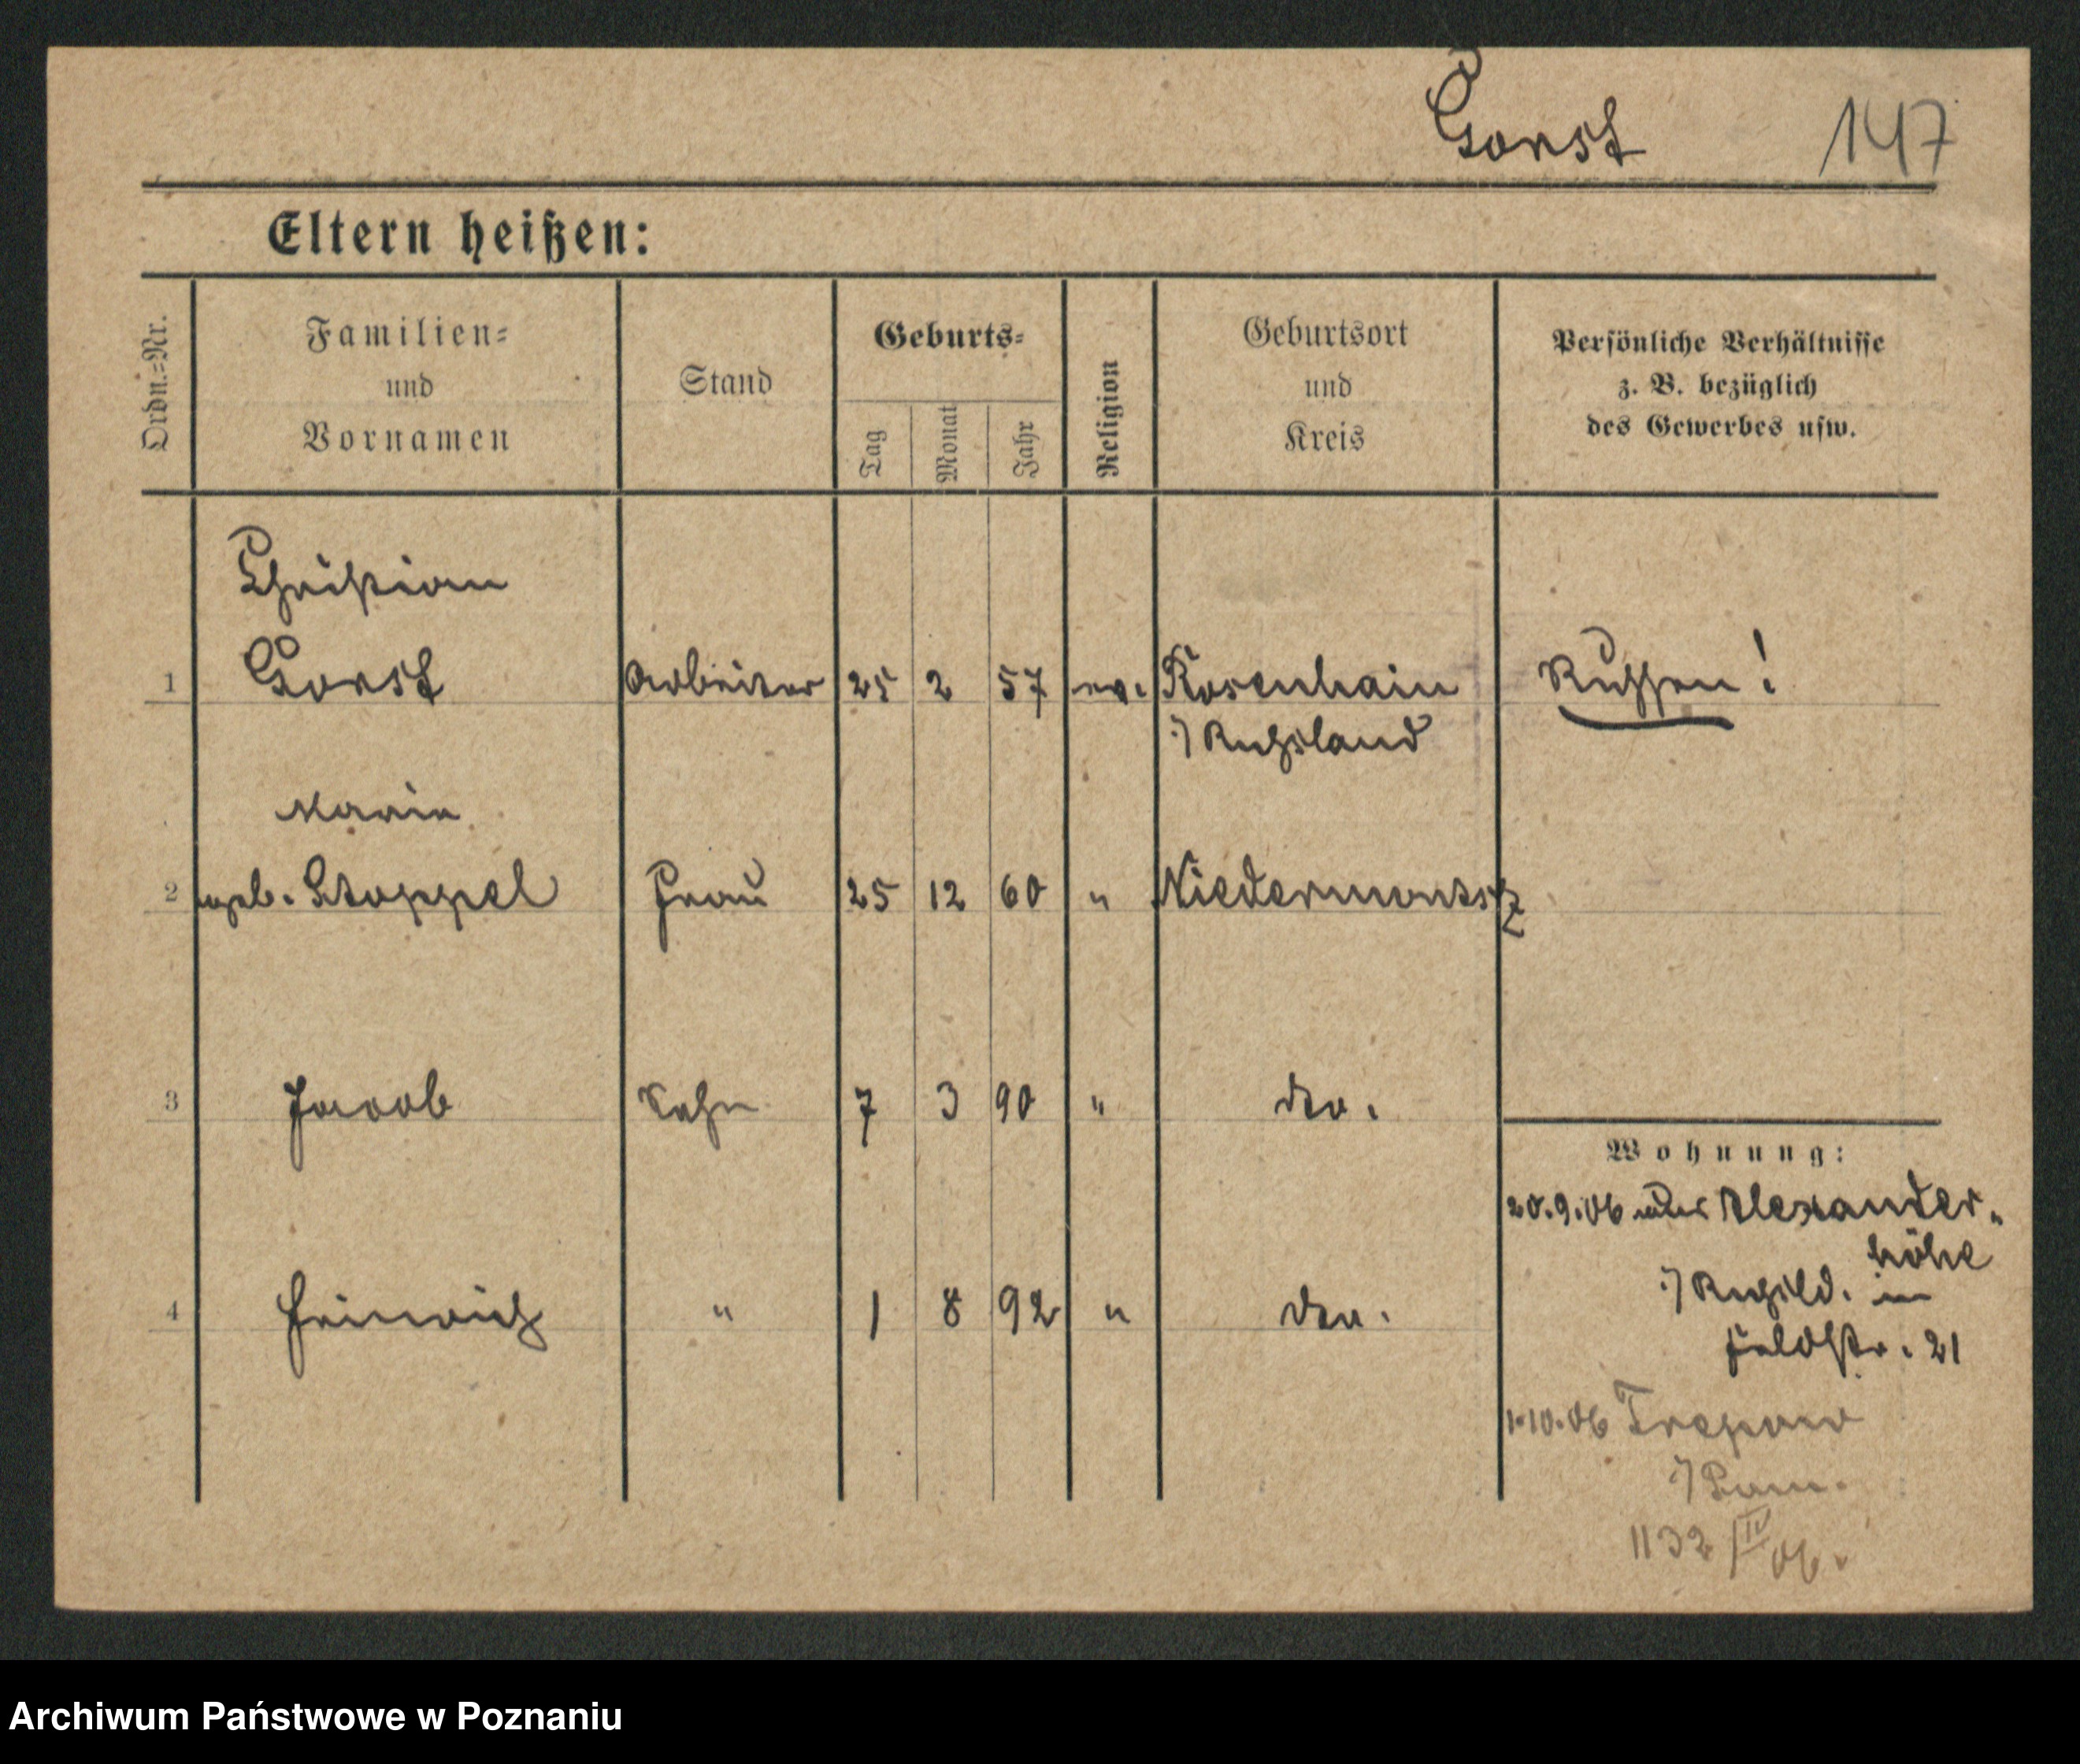 Gorst 147
Eltern heißen:
Ordn.-Nr.
Familien-
und
Vornamen
Stand
Geburts-
Tag
Monat
Jahr
Religion
Geburtsort
und
Kreis
Persönliche Verhältnisse
z. B. bezüglich
des Gewerbes usw.
Christian
1 Gorst Arbeiter 25 2 57 ev. Rosenhain Russen!
i/ Russland
Marie
2 geb. Stoppel Frau 25 12 60 " Niedermontz
3 Jacob Sohn 7 3 90 " dto.
4 Heinrich " 1 8 92 " dto.
Wohnung:
20.9.06 aus Alexander-
höhe
i/ Russld. in
Feldstr. 21
1.10.06 Trepow
i/ Pom.
1132 IV 06.
Archiwum Państwowe w Poznaniu